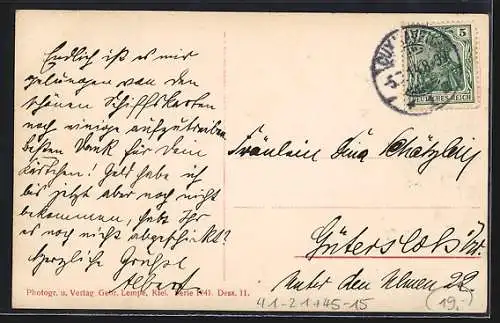 Endlich ist es mir
gelungen von den
schönen Schiffskarten
noch einige aufzutreiben
besten Dank für Dein
Kärtchen! Geld habe ich
bis jetzt aber noch nicht
bekommen, habt Ihr
es noch nicht abgeschickt?
Herzliche Grüße
Albert
5
DEUTSCHES REICH
Fräulein Tina
Gütersloh i/W.
Unter den Ulmen 22
Photogr. u. Verlag Gebr. Lempe, Kiel. Serie 1741. Dess. 11.
41-21+45-15
19.-